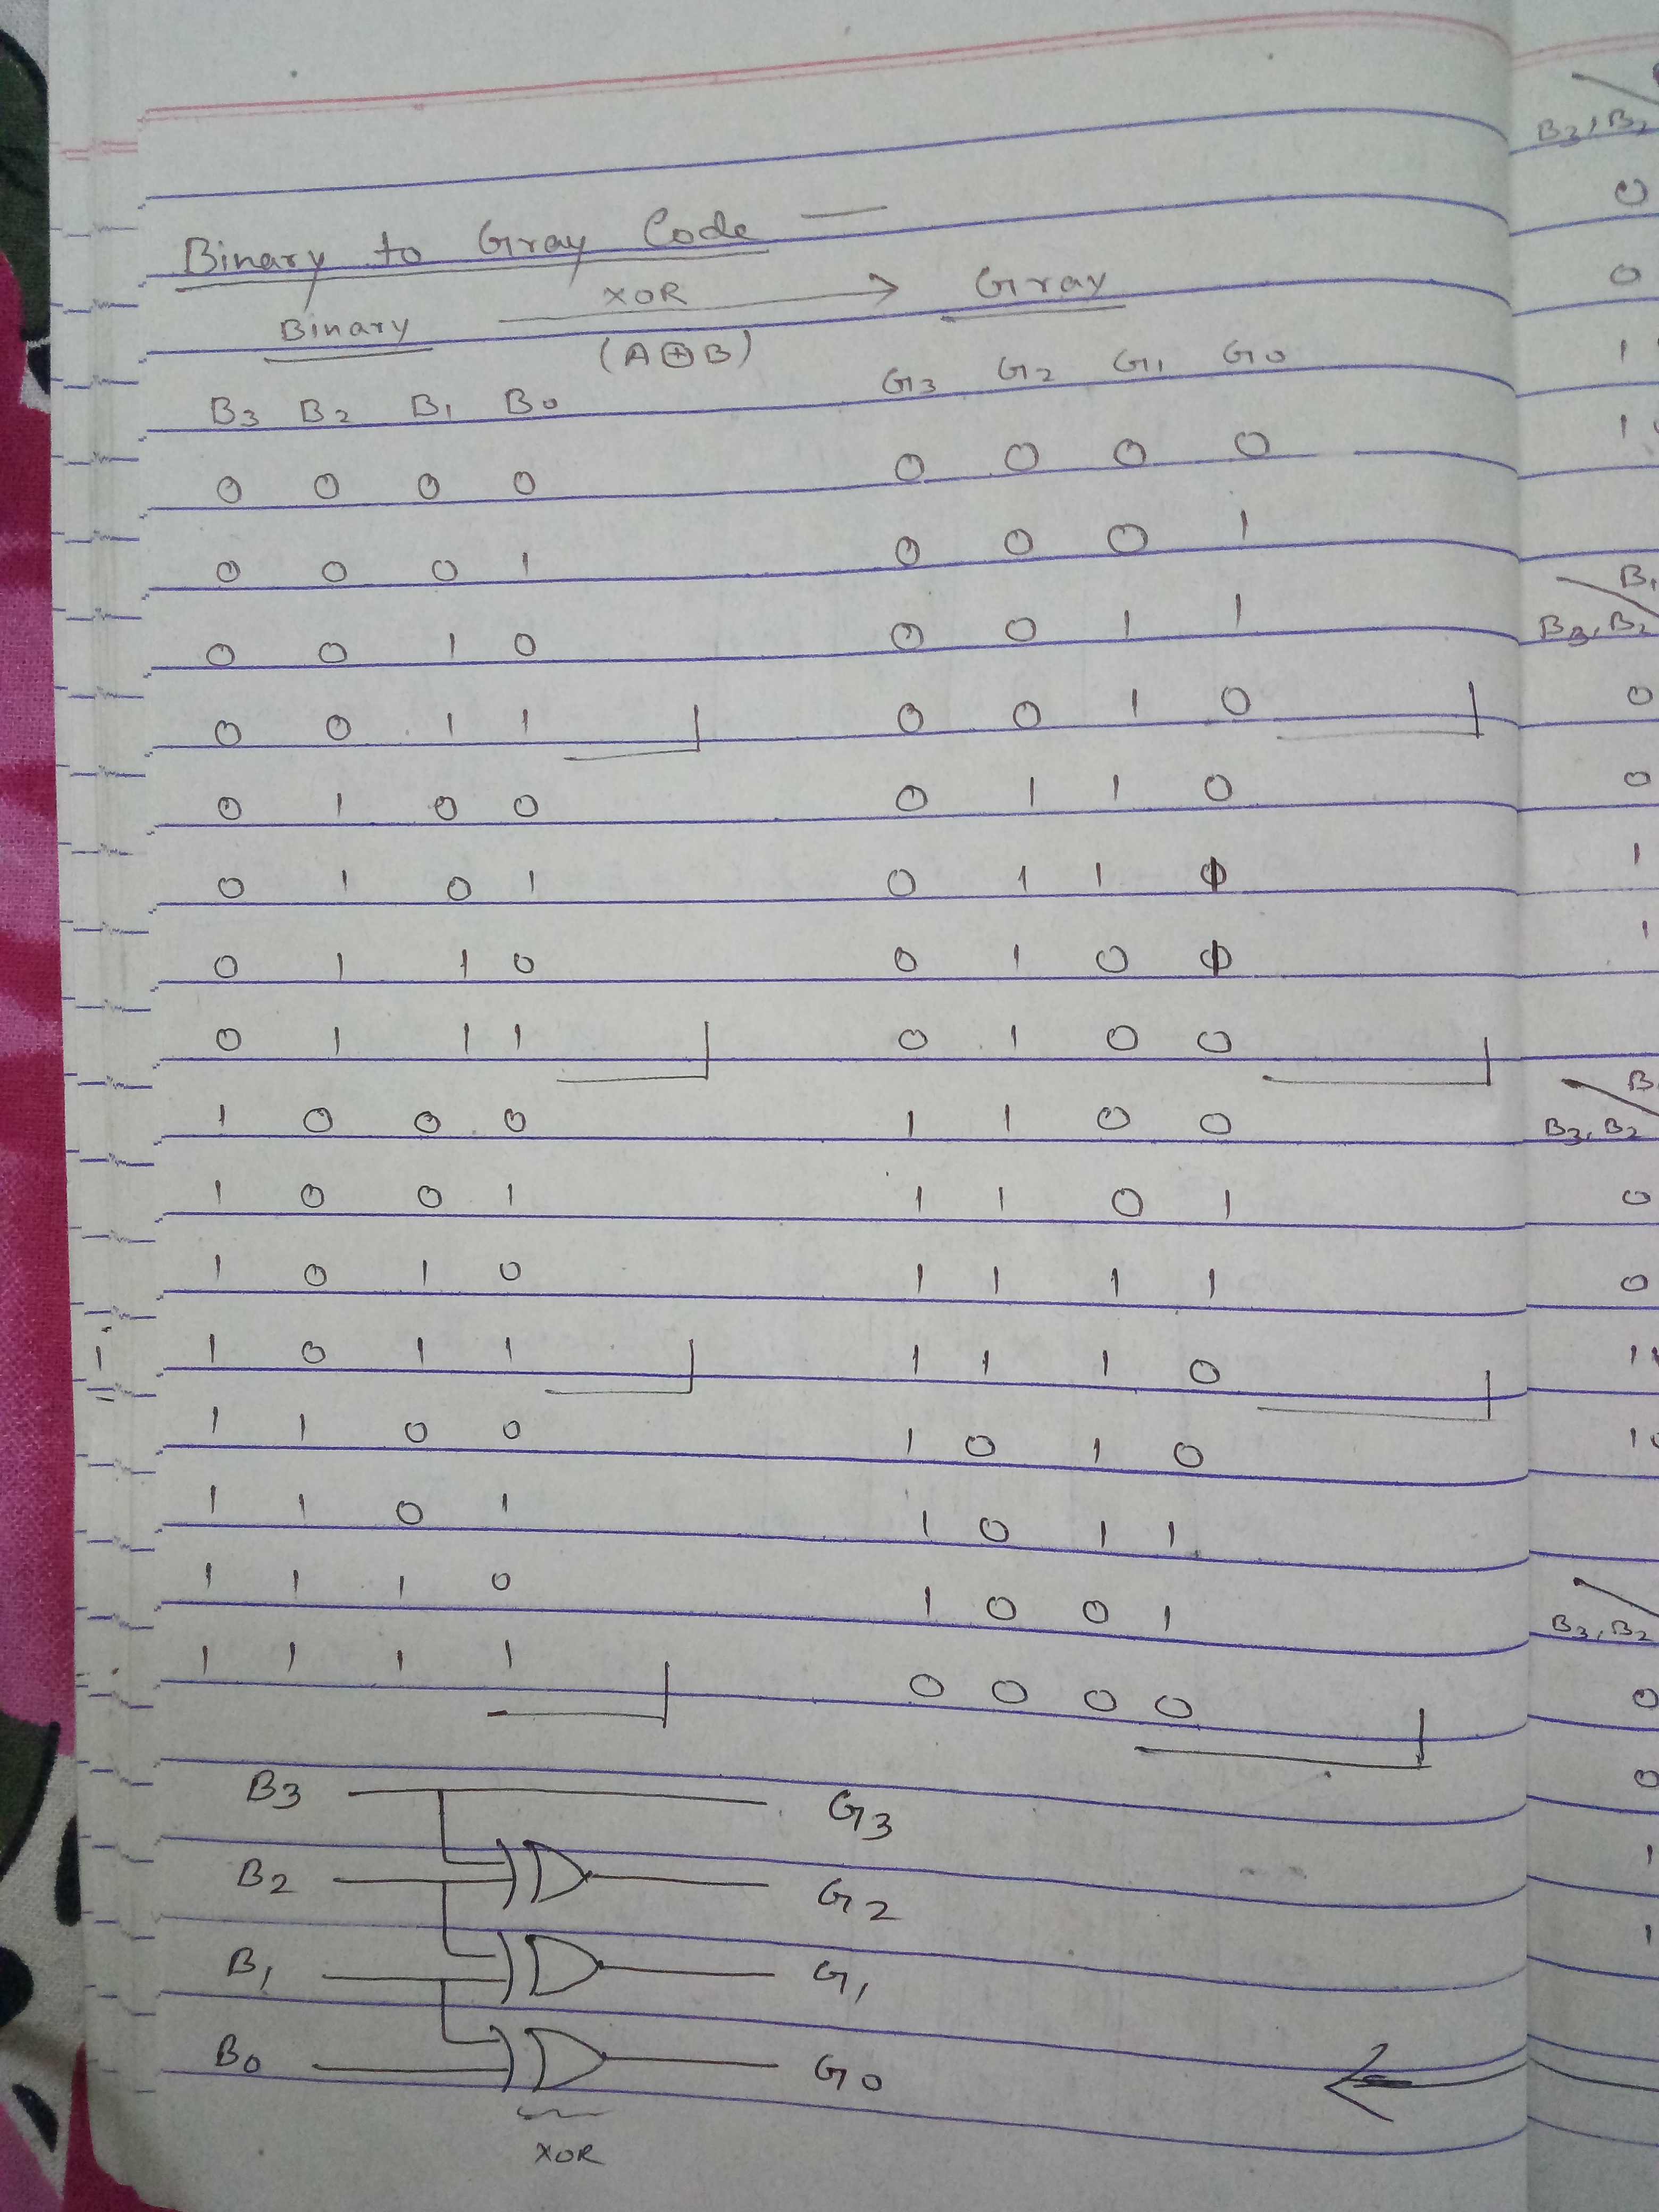 Binary to Gray Code —
Binary XOR → Gray
(A⊕B)
B3 B2 B1 B0 G3 G2 G1 G0
0 0 0 0 0 0 0 0
0 0 0 1 0 0 0 1
0 0 1 0 0 0 1 1
0 0 1 1 0 0 1 0
0 1 0 0 0 1 1 0
0 1 0 1 0 1 1
0 1 1 0 0 1 0
0 1 1 1 0 1 0 0
1 0 0 0 1 1 0 0
1 0 0 1 1 1 0 1
1 0 1 0 1 1 1 1
1 0 1 1 1 1 1 0
1 1 0 0 1 0 1 0
1 1 0 1 1 0 1 1
1 1 1 0 1 0 0 1
1 1 1 1 0 0 0 0
B3 G3
B2 G2
B1 G1
B0 G0
XOR
B3,B2
0
0
1
1
B1
B3,B2
0
0
1
1
B
B3,B2
0
0
1
1
B3,B2
0
0
1
1